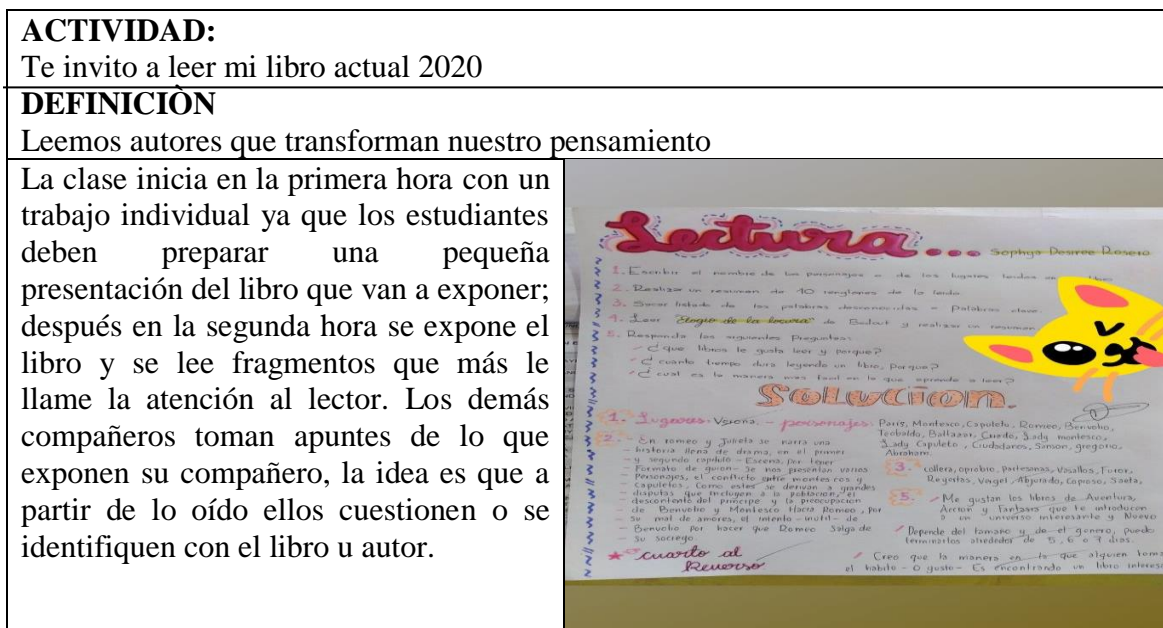 ACTIVIDAD:
Te invito a leer mi libro actual 2020
DEFINICIÒN
Leemos autores que transforman nuestro pensamiento
La clase inicia en la primera hora con un
trabajo individual ya que los estudiantes
deben preparar una pequeña
presentación del libro que van a exponer;
después en la segunda hora se expone el
libro y se lee fragmentos que más le
llame la atención al lector. Los demás
compañeros toman apuntes de lo que
exponen su compañero, la idea es que a
partir de lo oído ellos cuestionen o se
identifiquen con el libro u autor.
Lectura...
Sophya Desiree Rosero
1. Escribir el nombre de los personajes e de los lugares leidos en libro
2. Realizar un resumen de 10 renglones de lo leido
3. Sacar listado de las palabras desconocidas = Palabras clave.
4. Leer "Elogio de la locura" de y realizar un resumen
5. Responda los siguientes Preguntas:
¿que libros le gusta leer y porque?
¿cuanto tiempo dura leyendo un libro, Porque?
¿cual es la manera mas facil en la que aprende a leer?
Solucion.
1. Lugares: Verona. - personajes: Paris, Montesco, Capuleto, Romeo, Benvolio,
Teobaldo, Baltazar, Criado, Lady montesco,
Lady Capuleto, Ciudadanos, Simson, gregorio,
Abraham.
2. - En romeo y Julieta se narra una
historia llena de drama, en el primer
y segundo capitulo - Escena, por tener
Formato de guion- Se nos presentan varios
Personajes, el conflicto entre montescos y
capuletos. Como estas se derivan a grandes
disputas que incluyen a la poblacion, el
descontento del principe y la preocupacion
de Benvolio y Montesco Hacia Romeo, por
su mal de amores, el intento - inutil - de
Benvolio por hacer que Romeo Salga de
su
★ cuarto al
Reverso
3. collera, oprobio, partesanas, Vasallos, Furor,
Vergel, Abjurado, Copioso, Saeta,
5. Me gustan los libros de Aventura,
Accion y Fantasia que te introducen
a un universo interesante y Nuevo
Depende del tamaño y de el genero, puedo
terminarlos alrededor de 5, 6 o 7 dias.
Creo que la manera en la que alguien toma
el habito - o gusto - Es encontrando un libro